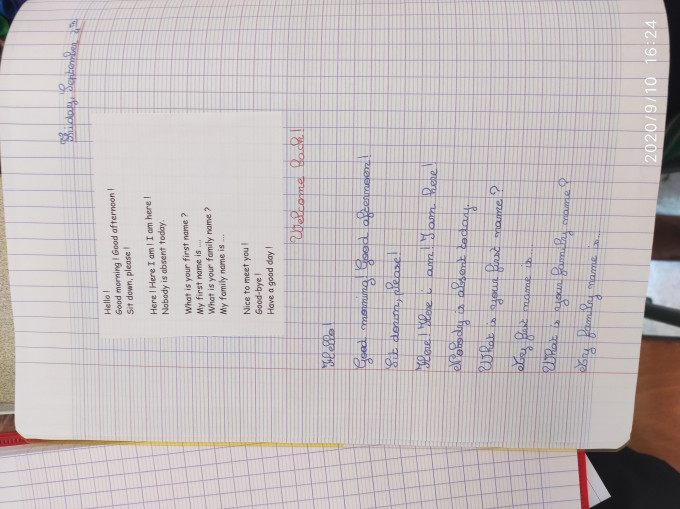 Friday, September 4th
Hello !
Good morning ! Good afternoon !
Sit down, please !
Here ! Here I am ! I am here !
Nobody is absent today.
What is your first name ?
My first name is ...
What is your family name ?
My family name is ...
Nice to meet you !
Good-bye !
Have a good day !
Welcome back !
Hello !
Good morning Good afternoon !
Sit down, please !
Here ! Here i am ! I am here !
Nobody is absent today.
What is your first name ?
My first name is ..
What is your family name ?
My family name is ..
2020/9/10 16:24